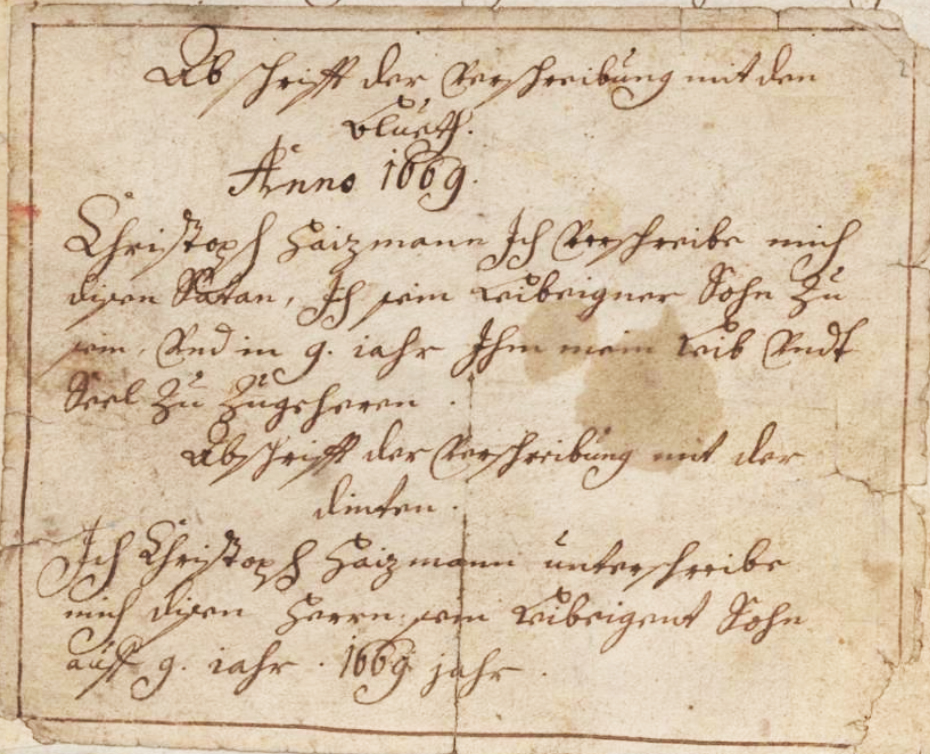 Abschrifft der Verschreibung mit den
blueth.
Anno 1669.
Christoph Haizmann Ich Verschreibe mich
disen Satan, Ich sein leibeigner Sohn Zu
sein, Und in 9. iahr Ihm mein leib Undt
Seel Zu Zugeheren.
Abschrifft der Verschreibung mit der
dinten.
Ich Christoph Haizmann unterschreibe
mich disen Herrn sein leibeigent Sohn
auff 9. iahr. 1669 jahr.